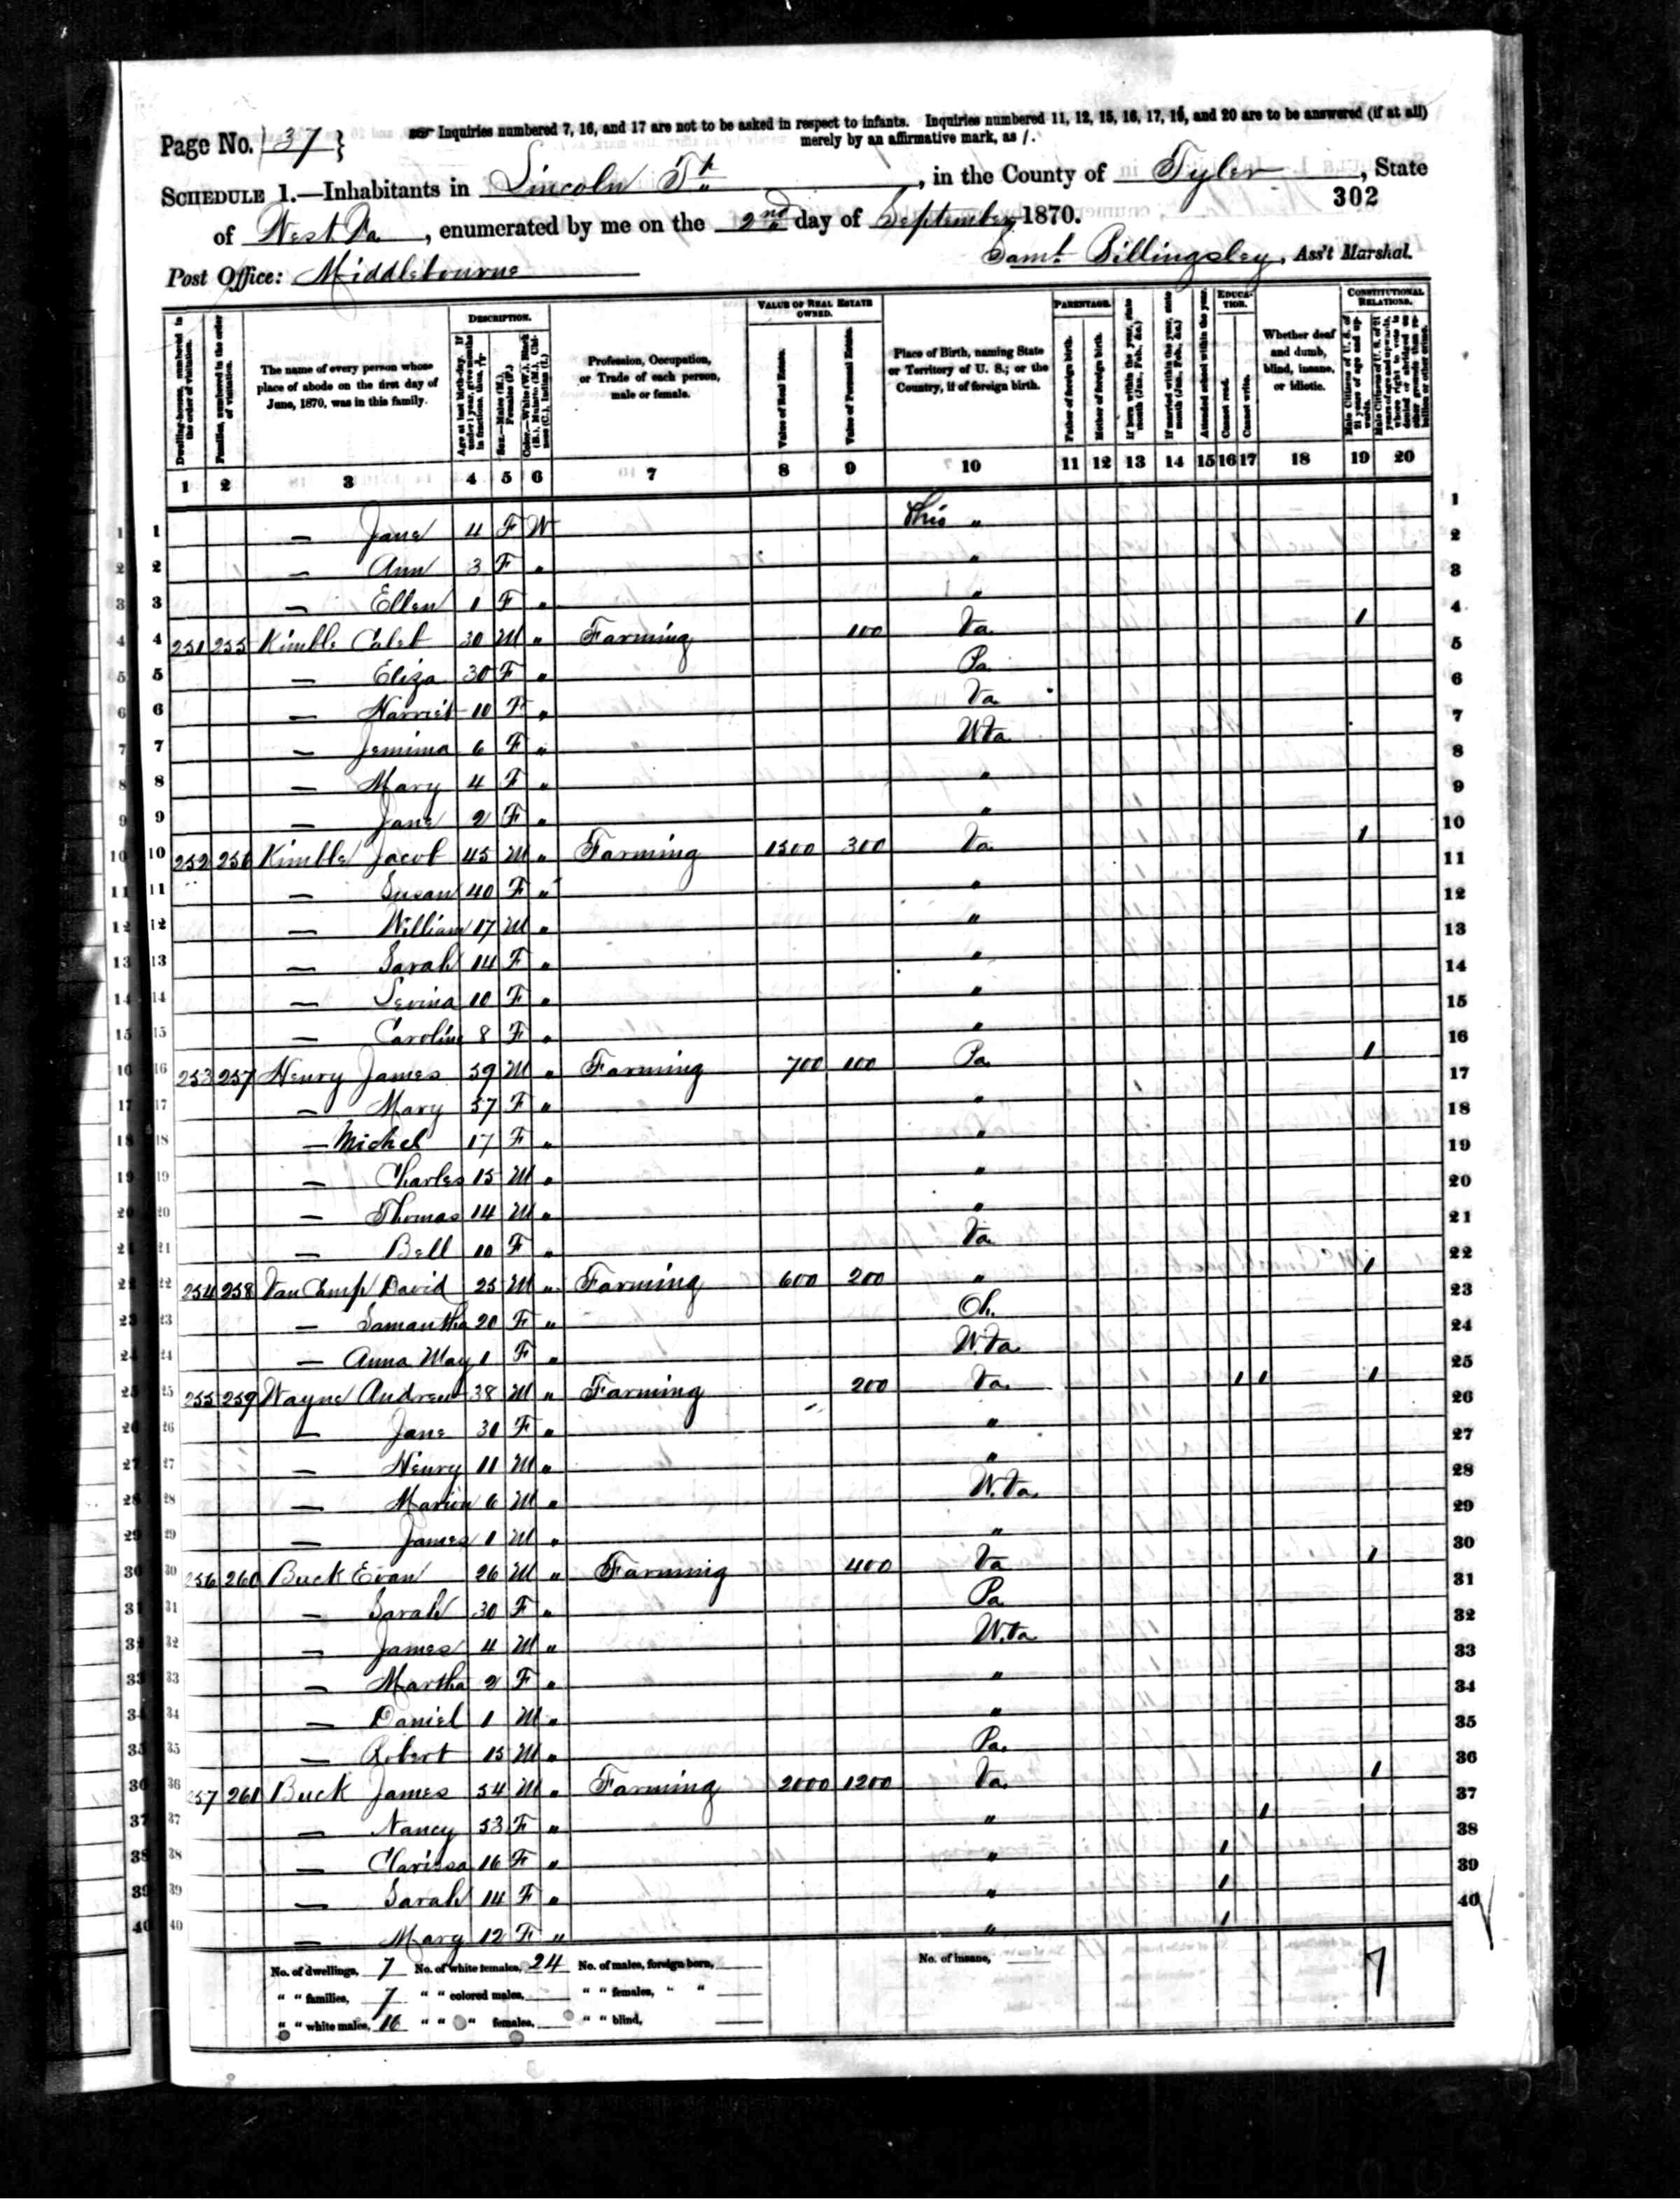 Page No. 37 }
Inquiries numbered 7, 16, and 17 are not to be asked in respect to infants. Inquiries numbered 11, 12, 15, 16, 17, 19, and 20 are to be answered (if at all)
merely by an affirmative mark, as /.
SCHEDULE 1.—Inhabitants in Lincoln Tp., in the County of Tyler, State
302
of West Va, enumerated by me on the 2nd day of September, 1870.
Post Office: Middlebourne Saml. Billingsley, Ass't Marshal.
DESCRIPTION. VALUE OF REAL ESTATE OWNED. PARENTAGE. EDUCATION. CONSTITUTIONAL RELATIONS.
Dwelling-houses, numbered in the order of visitation.
Families, numbered in the order of visitation.
The name of every person whose place of abode on the first day of June, 1870, was in this family.
Age at last birth-day. If under 1 year, give months in fractions, thus, 3/12
Sex.—Males (M.), Females (F.)
Color.—White (W.), Black (B.), Mulatto (M.), Chinese (C.), Indian (I.)
Profession, Occupation, or Trade of each person, male or female.
Value of Real Estate.
Value of Personal Estate.
Place of Birth, naming State or Territory of U. S.; or the Country, if of foreign birth.
Father of foreign birth.
Mother of foreign birth.
If born within the year, state month (Jan., Feb., &c.)
If married within the year, state month (Jan., Feb., &c.)
Attended school within the year.
Cannot read.
Cannot write.
Whether deaf and dumb, blind, insane, or idiotic.
Male Citizens of U. S. of 21 years of age and upwards.
Male Citizens of U. S. of 21 years of age and upwards, whose right to vote is denied or abridged on other grounds than rebellion or other crime.
1 2 3 4 5 6 7 8 9 10 11 12 13 14 15 16 17 18 19 20
1 — Jane 4 F W Ohio " 1
2 — Ann 3 F " " 2
3 — Ellen 1 F " " 3
4 251 255 Kimble Caleb 30 M " Farming 100 Va 1 4
5 — Eliza 30 F " Pa 5
6 — Harriet 10 F " Va 6
7 — Jemima 6 F " W Va 7
8 — Mary 4 F " " 8
9 — Jane 2 F " " 9
10 252 256 Kimble Jacob 45 M " Farming 1500 300 Va 1 10
11 — Susan 40 F " " 11
12 — William 17 M " " 12
13 — Sarah 14 F " " 13
14 — Levina 10 F " " 14
15 — Caroline 8 F " " 15
16 253 257 Henry James 59 M " Farming 700 100 Pa 1 16
17 — Mary 57 F " " 17
18 — Michel 17 F " " 18
19 — Charles 15 M " " 19
20 — Thomas 14 M " " 20
21 — Bell 10 F " Va 21
22 254 258 Van Camp David 25 M " Farming 600 200 " 1 22
23 — Samantha 20 F " Oh. 23
24 — Anna May 1 F " W Va 24
25 255 259 Wayne Andrew 38 M " Farming 200 Va 1 1 1 25
26 — Jane 30 F " " 26
27 — Henry 11 M " " 27
28 — Marion 6 M " W. Va. 28
29 — James 1 M " " 29
30 256 260 Buck Evan 26 M " Farming 400 Va 1 30
31 — Sarah 30 F " Pa 31
32 — James 4 M " W. Va 32
33 — Martha 2 F " " 33
34 — Daniel 1 M " " 34
35 — Robert 15 M " Pa. 35
36 257 261 Buck James 54 M " Farming 2000 1200 Va. 1 36
37 — Nancy 53 F " " 1 37
38 — Clarissa 16 F " " 1 38
39 — Sarah 14 F " " 1 39
40 — Mary 12 F " " 1 40
No. of dwellings, 7 No. of white females, 24 No. of males, foreign born, No. of insane, 7
" " families, 7 " " colored males, " " females, " "
" " white males, 16 " " " females, " " blind,